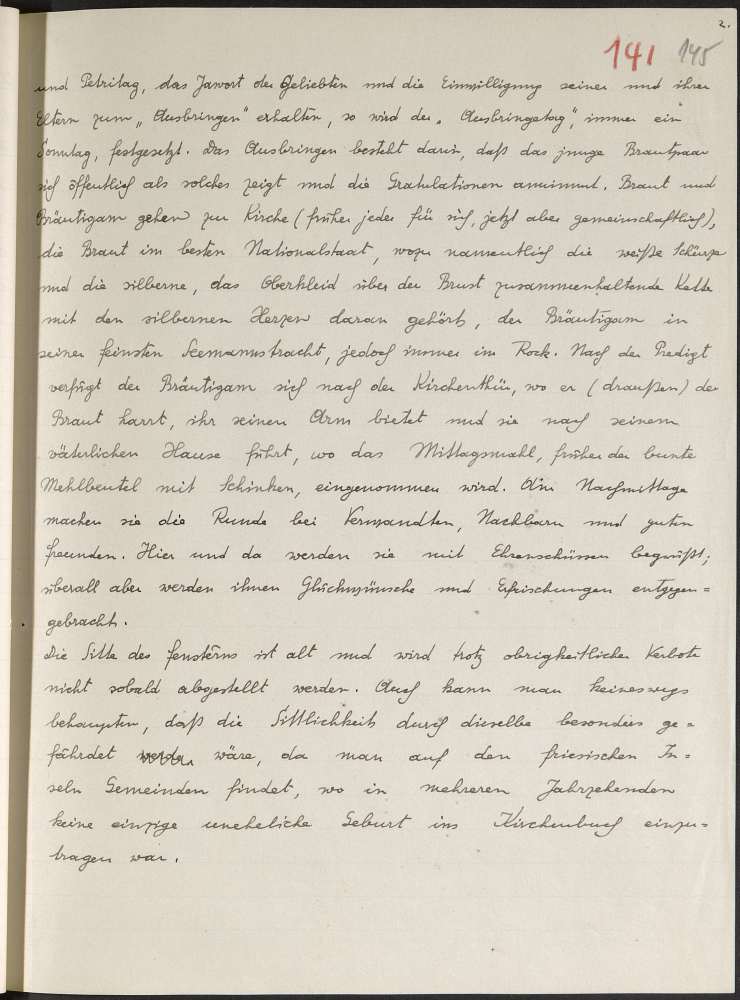 2.
141 145
und Petritag, das Jawort der Geliebten und die Einwilligung seiner und ihrer
Eltern zum „Ausbringen" erhalten, so wird der „Ausbringetag", immer ein
Sonntag, festgesetzt. Das Ausbringen besteht darin, daß das junge Brautpaar
sich öffentlich als solches zeigt und die Gratulationen annimmt. Braut und
Bräutigam gehen zur Kirche (früher jeder für sich, jetzt aber gemeinschaftlich),
die Braut im besten Nationalstaat, wozu namentlich die weiße Schürze
und die silberne, das Oberkleid über der Brust zusammenhaltende Kette
mit den silbernen Herzen daran gehört, der Bräutigam in
seiner feinsten Seemannstracht, jedoch immer im Rock. Nach der Predigt
verfügt der Bräutigam sich nach der Kirchenthür, wo er (draußen) der
Braut harrt, ihr seinen Arm bietet und sie nach seinem
väterlichen Hause führt, wo das Mittagsmahl, früher der bunte
Mehlbeutel mit Schinken, eingenommen wird. Am Nachmittage
machen sie die Runde bei Verwandten, Nachbarn und guten
Freunden. Hier und da werden sie mit Ehrenschüssen begrüßt;
überall aber werden ihnen Glückwünsche und Erfrischungen entgegen=
gebracht.
Die Sitte des Fensterns ist alt und wird trotz obrigkeitlicher Verbote
nicht sobald abgestellt werden. Auch kann man keineswegs
behaupten, daß die Sittlichkeit durch dieselbe besonders ge=
fährdet wäre, da man auf den friesischen In=
seln Gemeinden findet, wo in mehreren Jahrzehenden
keine einzige uneheliche Geburt ins Kirchenbuch einzu=
tragen war.